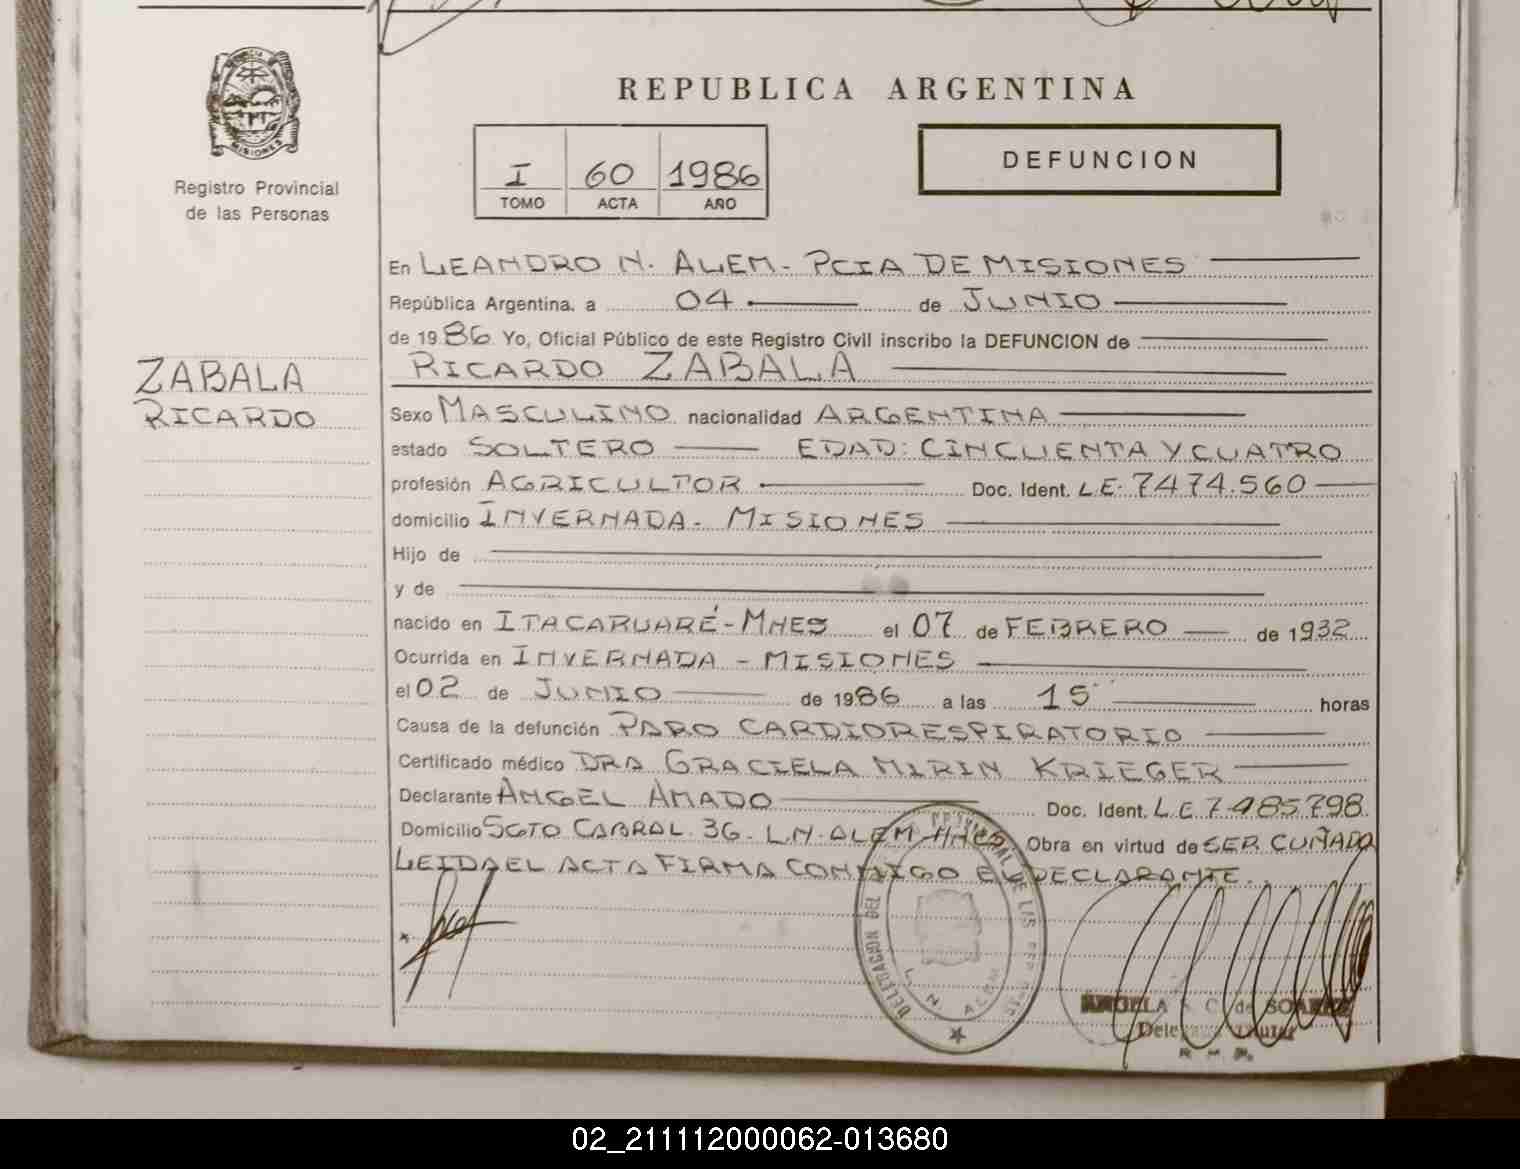 REPUBLICA ARGENTINA
MISIONES
Registro Provincial
de las Personas
I 60 1986
TOMO ACTA AÑO
DEFUNCION
En LEANDRO N. ALEM - PCIA DE MISIONES
República Argentina, a 04 de JUNIO
de 1986 Yo, Oficial Público de este Registro Civil inscribo la DEFUNCION de
RICARDO ZABALA
ZABALA
RICARDO
Sexo MASCULINO nacionalidad ARGENTINA
estado SOLTERO EDAD: CINCUENTA Y CUATRO
profesión AGRICULTOR Doc. Ident. L.E. 7474.560
domicilio INVERNADA - MISIONES
Hijo de
y de
nacido en ITACARUARÉ - MNES el 07 de FEBRERO de 1932
Ocurrida en INVERNADA - MISIONES
el 02 de JUNIO de 1986 a las 15 horas
Causa de la defunción PARO CARDIORESPIRATORIO
Certificado médico DRA GRACIELA MIRIN KRIEGER
Declarante ANGEL AMADO Doc. Ident. L.E 7485798
Domicilio SGTO CABRAL 36 - L.N. ALEM MNES Obra en virtud de SER CUÑADO
LEIDA EL ACTA FIRMA CONMIGO EL DECLARANTE.
DELEGACION DEL PROVINCIAL DE LAS
L. N. ALEM
ANGELA S. C. de SOAREZ
Delegada Titular
02_211112000062-013680